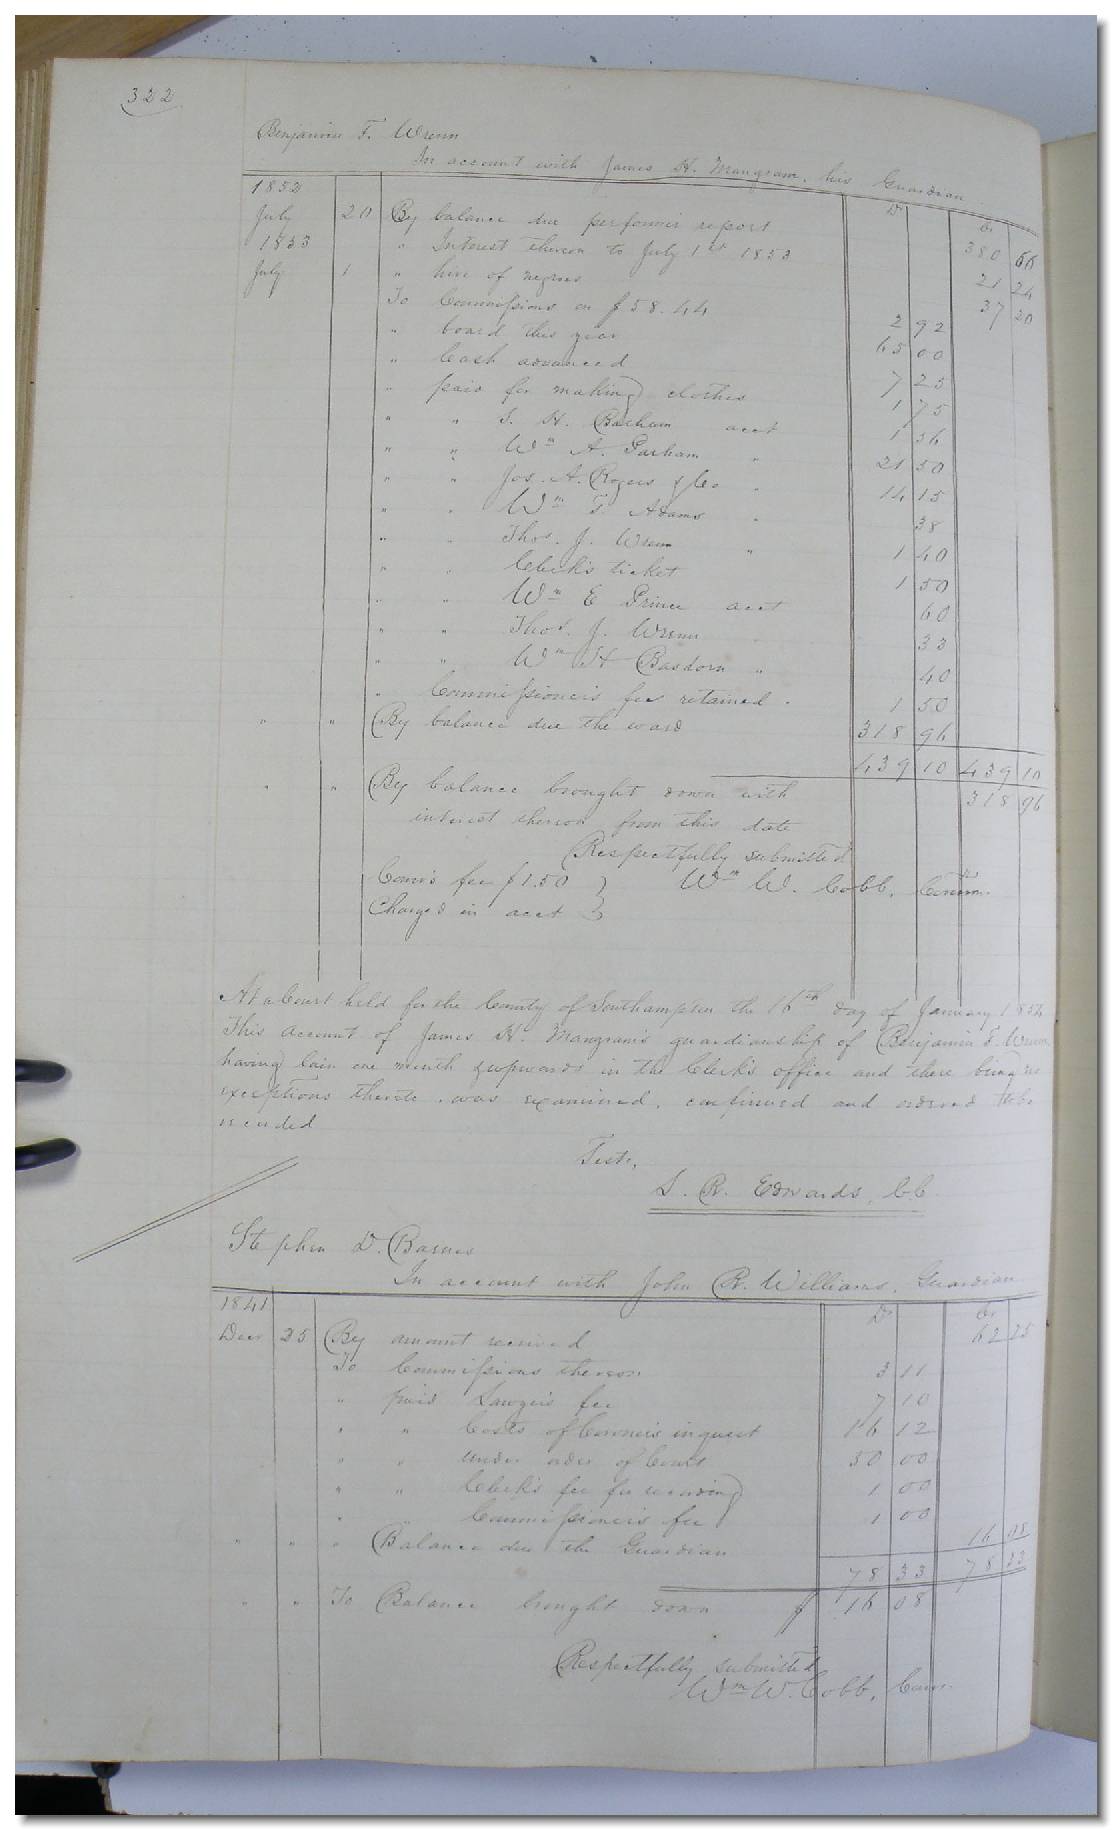 322
Benjamin F. Wrenn
In account with James H. Mangram, his Guardian
1852 Dr Cr
July 20 By balance due per former report 380 66
1853 " Interest thereon to July 1st 1853 21 24
July 1 " hire of negroes 37 20
To Commissions on $58.44 2 92
" board this year 65 00
" Cash advanced 7 25
" paid for making clothes 1 75
" " S. H. Barham acct 1 36
" " Wm A. Parham " 21 50
" " Jos. A. Rogers & Co " 14 15
" " Wm T. Adams " 38
" " Thos. J. Wrenn " 1 40
" " Clerk's ticket 1 50
" " Wm E Prince acct 60
" " Thos. J. Wrenn 33
" " Wm H " 40
" Commissioner's fee retained. 1 50
" " By balance due the ward 318 96
439 10 439 10
" " By balance brought down with 318 96
interest thereon from this date
Respectfully submitted
Com's fee $1.50 } Wm W. Cobb, Comr.
Charged in acct }
At a Court held for the County of Southampton the 16th day of January 1854
This Account of James H. Mangram's guardianship of Benjamin F. Wrenn
having lain one month & upwards in the Clerk's office and there being no
exceptions thereto, was examined, confirmed and ordered to be
recorded
Teste,
L. R. Edwards, C.C.
Stephen D. Barnes
In account with John R. Williams, Guardian
1841 Dr Cr
Decr 25 By amount received 62 25
To Commissions thereon 3 11
" paid Lawyer's fee 7 10
" " Costs of Coroner's inquest 16 12
" " under order of Court 50 00
" " Clerk's fee for recording 1 00
" " Commissioner's fee 1 00
" " " Balance due the Guardian 16 08
78 33 78 33
" " To Balance brought down $ 16 08
Respectfully submitted
Wm W. Cobb, Comr.